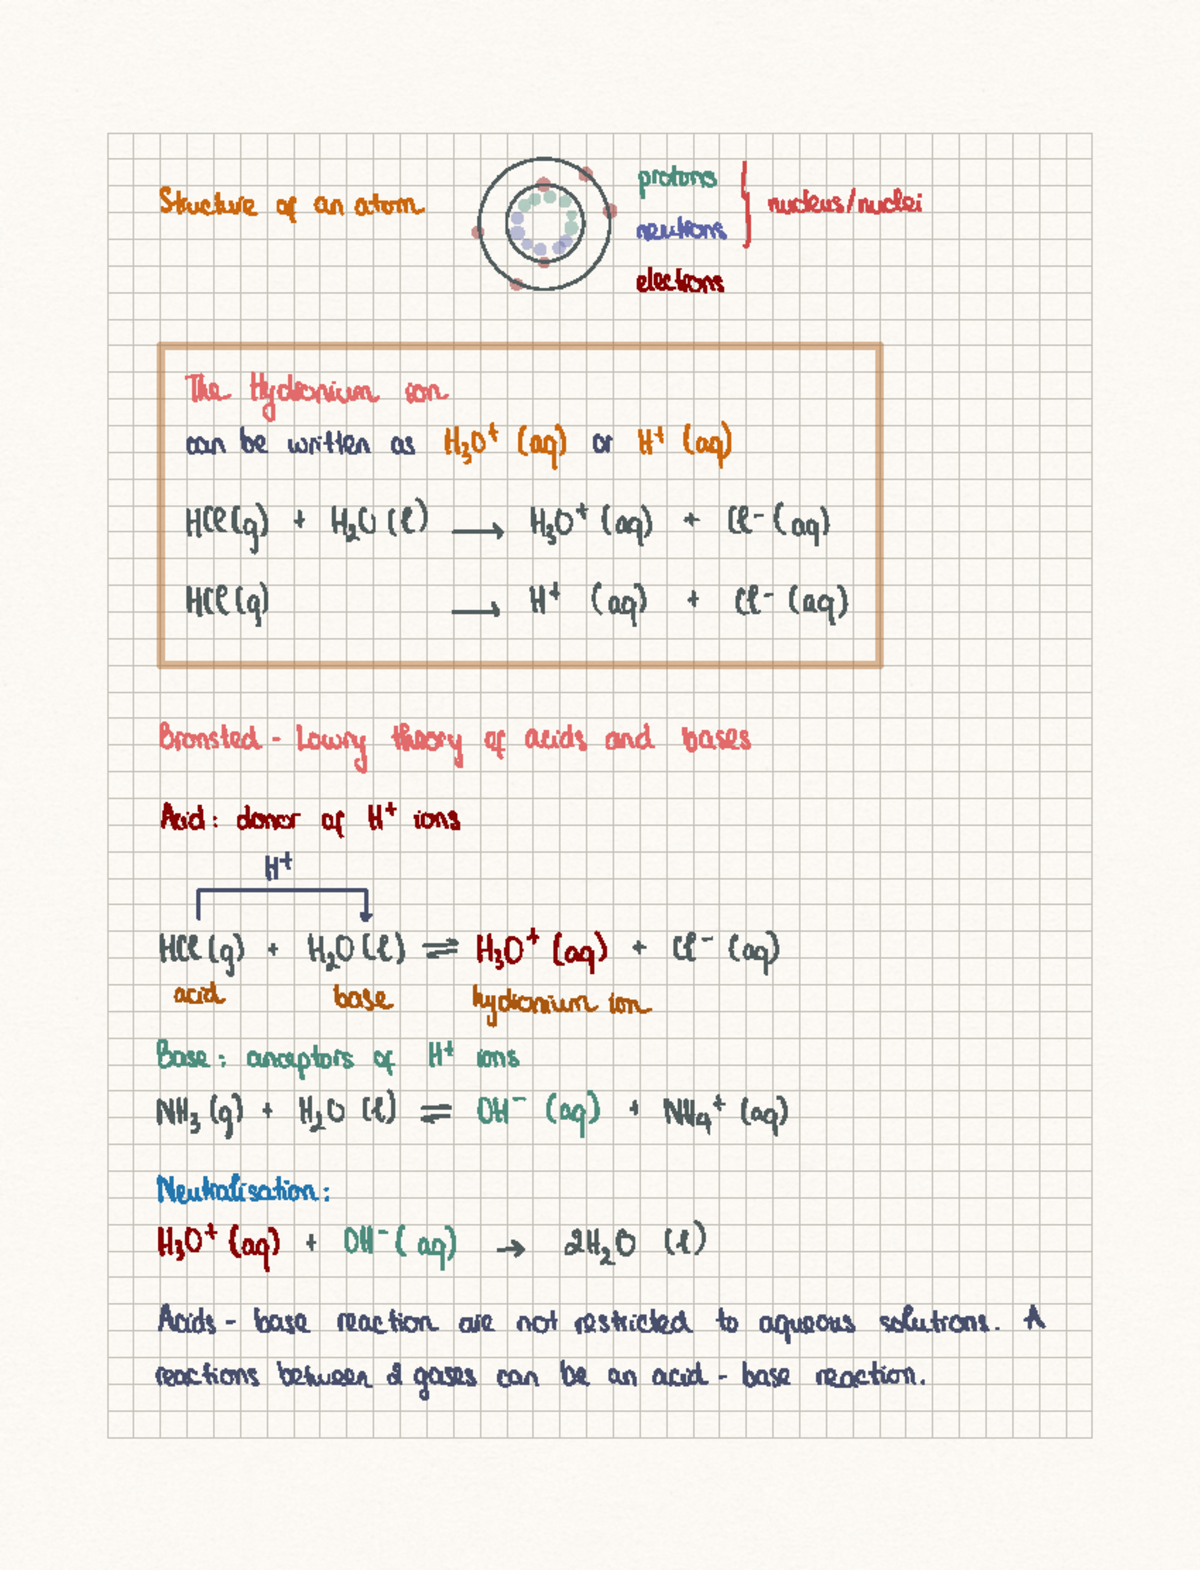 Structure of an atom
protons
neutrons
nucleus/nuclei
electrons
The Hydronium ion
can be written as H₃O⁺ (aq) or H⁺ (aq)
HCl(g) + H₂O(l) ⟶ H₃O⁺(aq) + Cl⁻(aq)
HCl(g) ⟶ H⁺ (aq) + Cl⁻(aq)
Bronsted - Lowry theory of acids and bases
Acid: donor of H⁺ ions
H⁺
HCl(g) + H₂O(l) ⇌ H₃O⁺(aq) + Cl⁻(aq)
acid base hydronium ion
Base: anceptors of H⁺ ions
NH₃(g) + H₂O(l) ⇌ OH⁻ (aq) + NH₄⁺(aq)
Neutralisation:
H₃O⁺(aq) + OH⁻(aq) → 2H₂O (l)
Acids - base reaction are not restricted to aqueous solutions. A
reactions between 2 gases can be an acid - base reaction.